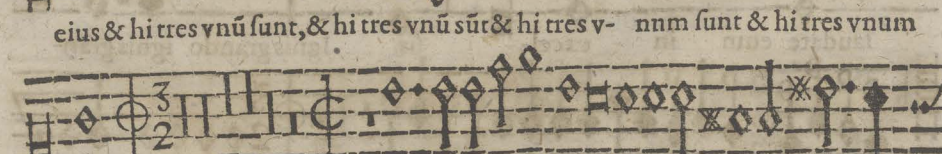 eius & hi tres vnū ſunt, & hi tres vnū sūt & hi tres v- nnm ſunt & hi tres vnum
3
2